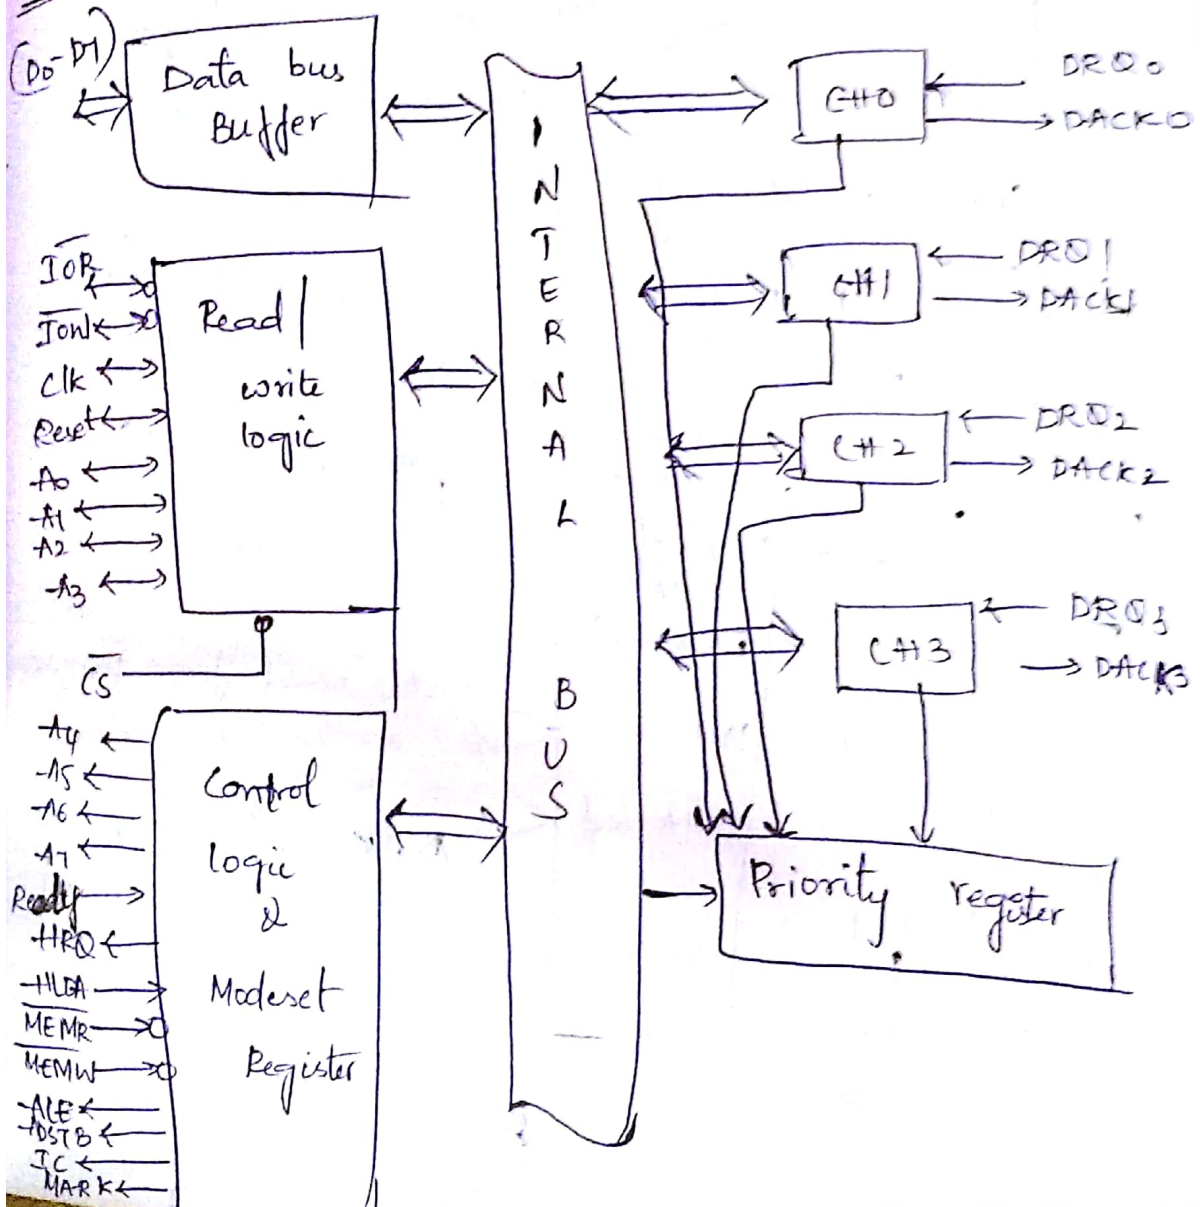 (D0-D7)
Data bus
Buffer
I̅O̅R̅
I̅O̅W̅
Clk
Reset
A0
A1
A2
A3
Read/
write
logic
C̅S̅
A4
A5
A6
A7
Ready
HRQ
HLDA
M̅E̅M̅R̅
M̅E̅M̅W̅
ALE
ADSTB
TC
MARK
Control
logic
&
Modeset
Register
INTERNAL
BUS
CH0
DRQ0
DACK0
CH1
DRQ1
DACK1
CH2
DRQ2
DACK2
CH3
DRQ3
DACK3
Priority register